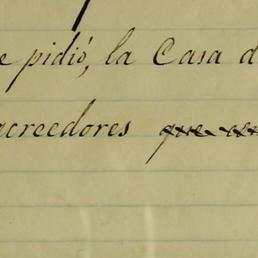 e pidió, la Casa d
acreedores que